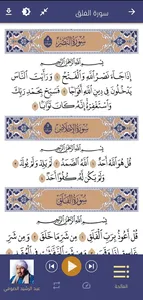 سورة الفلق
سُورَةُ النَّصْرِ
بِسْمِ اللَّهِ الرَّحْمَٰنِ الرَّحِيمِ
إِذَا جَاءَ نَصْرُ اللَّهِ وَالْفَتْحُ ۝ وَرَأَيْتَ النَّاسَ
يَدْخُلُونَ فِي دِينِ اللَّهِ أَفْوَاجًا ۝ فَسَبِّحْ بِحَمْدِ رَبِّكَ
وَاسْتَغْفِرْهُ إِنَّهُ كَانَ تَوَّابًا ۝
سُورَةُ الإِخْلَاصِ
بِسْمِ اللَّهِ الرَّحْمَٰنِ الرَّحِيمِ
قُلْ هُوَ اللَّهُ أَحَدٌ ۝ اللَّهُ الصَّمَدُ ۝ لَمْ يَلِدْ وَلَمْ يُولَدْ ۝
وَلَمْ يَكُن لَّهُ كُفُوًا أَحَدٌ ۝
سُورَةُ الْفَلَقِ
بِسْمِ اللَّهِ الرَّحْمَٰنِ الرَّحِيمِ
قُلْ أَعُوذُ بِرَبِّ الْفَلَقِ ۝ مِن شَرِّ مَا خَلَقَ ۝
القائمة
عبد الرشيد الصوفي